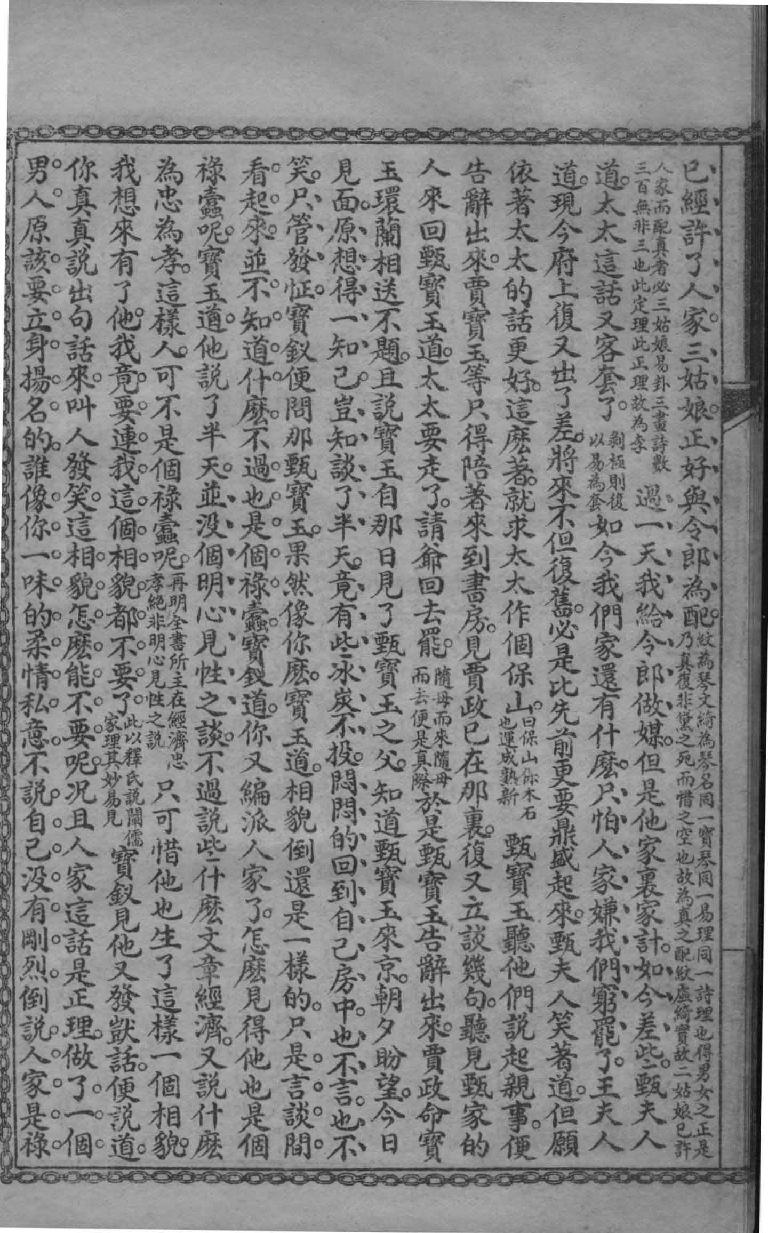 已經許了人家三姑娘正好與令郎為配紋為琴文綺為琴名同一寶琴同一易理同一詩理也得男女之正是乃真復非黛之死而惜之空也故為真之配紋虛綺實故二姑娘已許
人家而配真者必三姑娘易卦三畫詩數三百無非三也此定理此正理故為李過一天我給令郎做媒但是他家裏家計如今差些甄夫人
道太太這話又客套了剝極則復以易為套如今我們家還有什麽只怕人家嫌我們窮罷了王夫人
道現今府上復又出了差將來不但復舊必是比先前更要鼎盛起來甄夫人笑著道但願
依著太太的話更好這麽著就求太太作個保山曰保山係木石也運成熟新甄寶玉聽他們說起親事便
告辭出來賈寶玉等只得陪著來到書房見賈政已在那裏復又立談幾句聽見甄家的
人來回甄寶玉道太太要走了請爺回去罷隨母而來隨母而去便是真際於是甄寶玉告辭出來賈政命寶
玉環蘭相送不題且說寶玉自那日見了甄寶玉之父知道甄寶玉來京朝夕盼望今日
見面原想得一知己豈知談了半天竟有些冰炭不投悶悶的回到自己房中也不言也不
笑只管發怔寶釵便問那甄寶玉果然像你麽寶玉道相貌倒還是一樣的只是言談間
看起來並不知道什麽不過也是個祿蠹寶釵道你又編派人家了怎麽見得他也是個
祿蠹呢寶玉道他說了半天並没個明心見性之談不過說些什麽文章經濟又說什麽
為忠為孝這樣人可不是個祿蠹呢再明全書所主在經濟忠孝絶非明心見性之說只可惜他也生了這樣一個相貌
我想來有了他我竟要連我這個相貌都不要了此以釋氏說闡儒家理其妙易見寶釵見他又發獃話便說道
你真真說出句話來叫人發笑這相貌怎麽能不要呢況且人家這話是正理做了一個
男人原該要立身揚名的誰像你一味的柔情私意不說自己没有剛烈倒說人家是祿